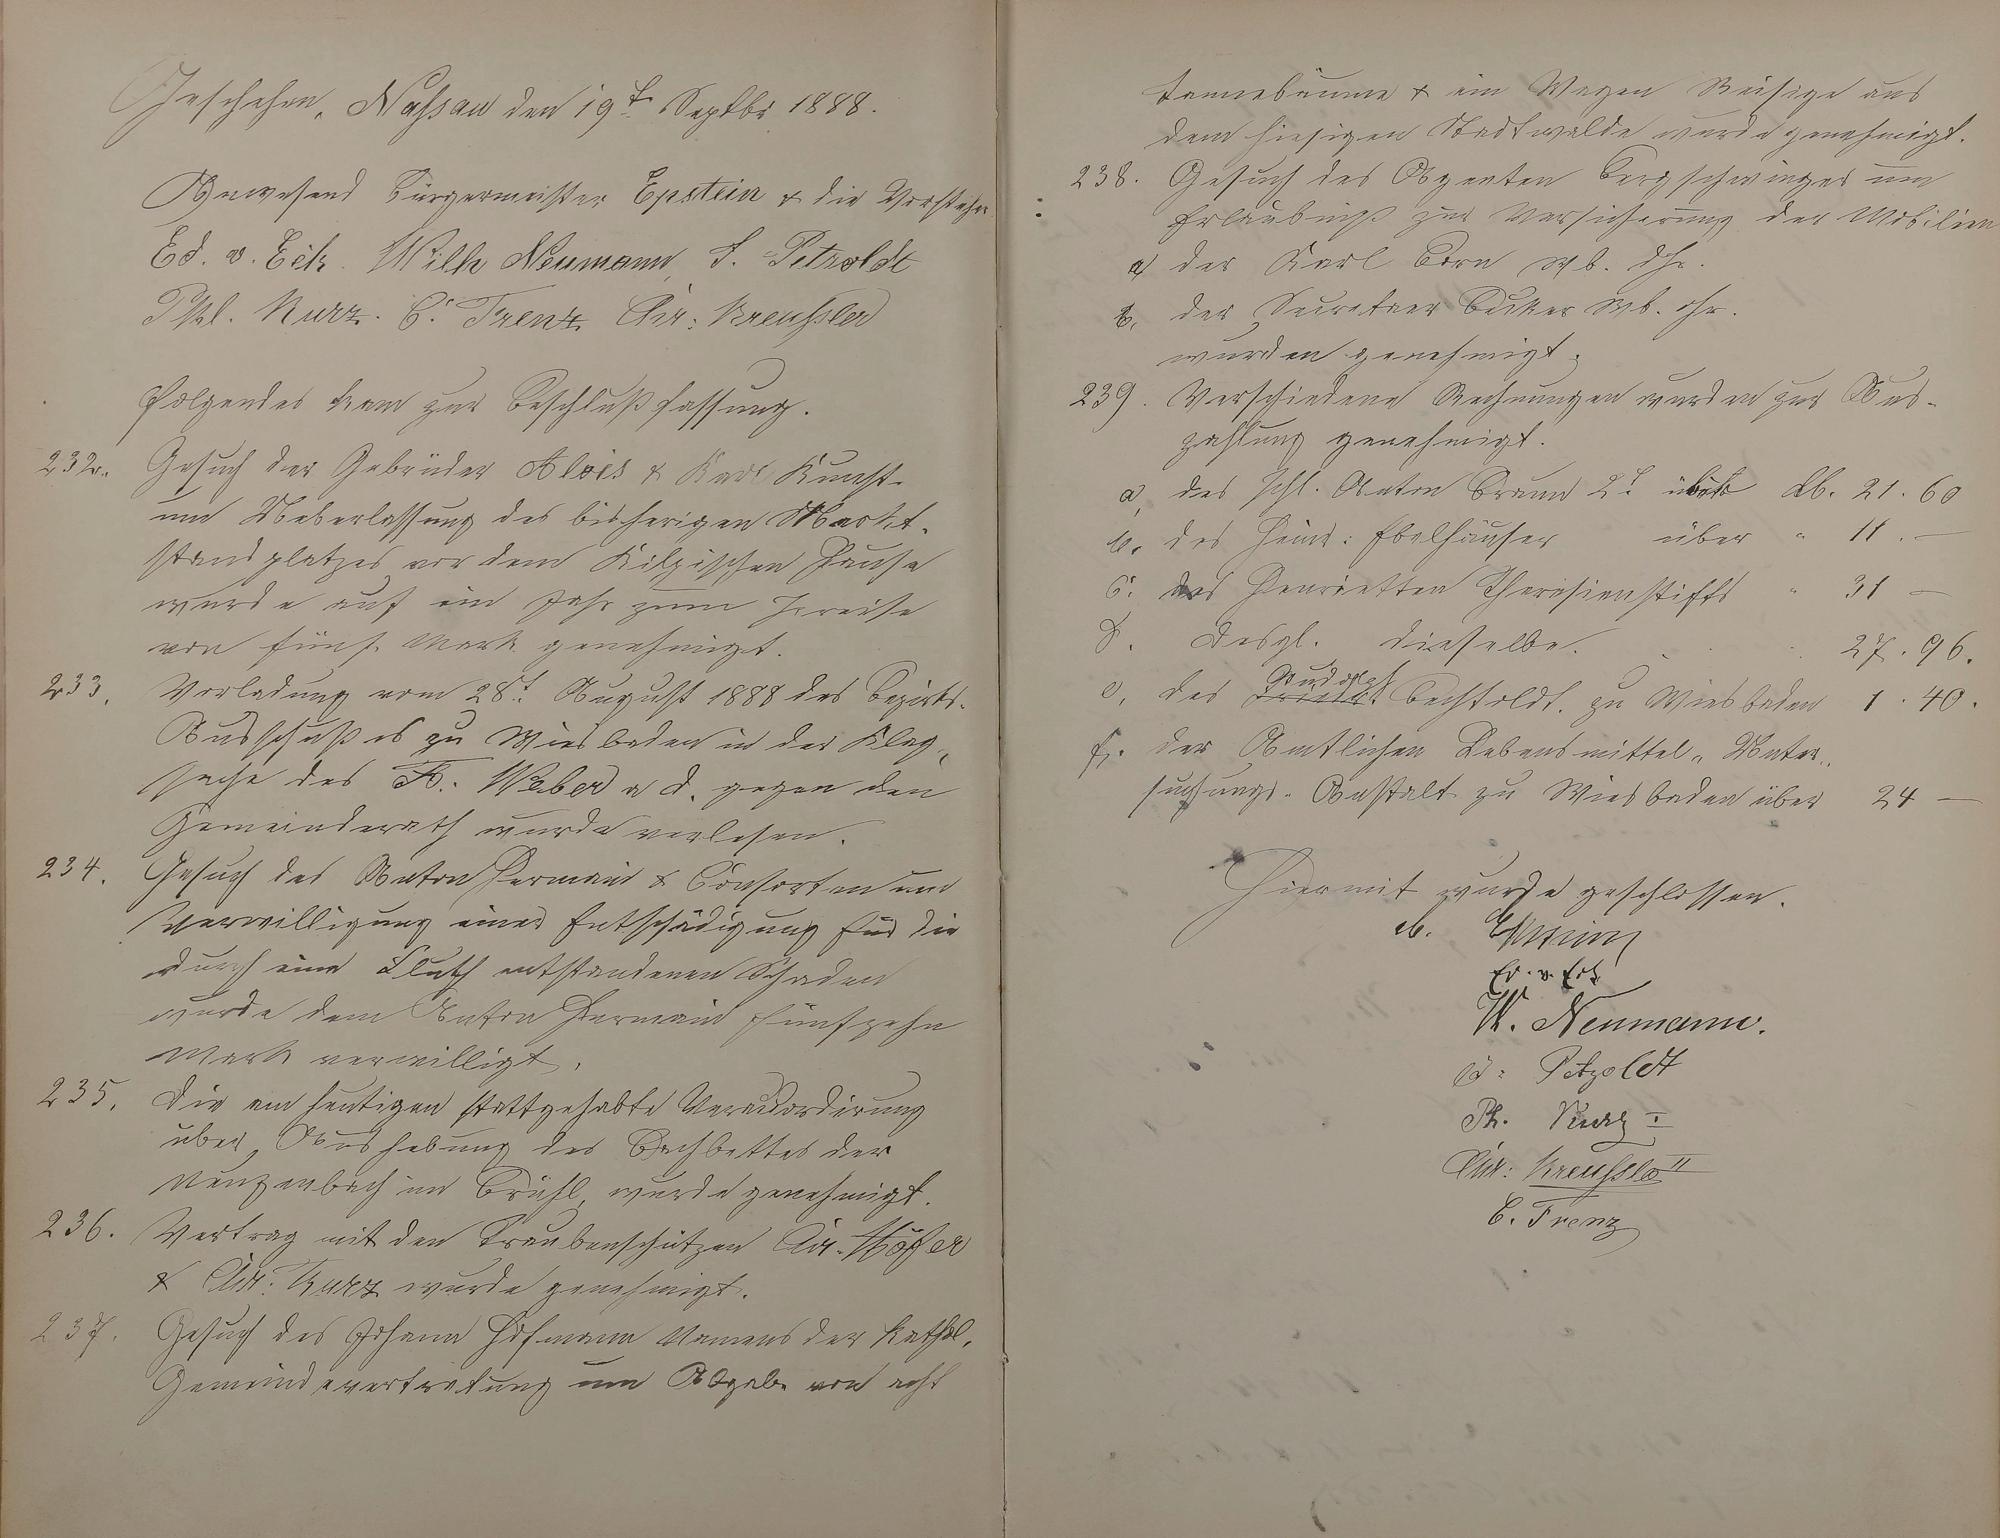 Geschehen, Nassau den 19t. Septbr 1888.
Anwesend Bürgermeister Epstein & die Vorsteher
Ed. v. Eck. Wilh Neumann, L. Petzoldt
Phil. Kurz. C. Trenz Chr: Kreußler
Folgendes kam zur Beschlußfassung.
232. Gesuch der Gebrüder Alois & Karl Kunst
um Ueberlassung des bisherigen Markt-
standplatzes vor dem Kilpischen Hause
wurde auf ein Jahr zum Preise
von fünf Mark genehmigt.
233. Vorladung vom 28t. August 1888 des Bezirks-
Ausschußes zu Wiesbaden in der Klag-
sache des Fr. Weber a d. gegen den
Gemeinderath wurde verlesen.
234. Gesuch des Anton Hermani & Consorten um
Verwilligung einer Entschädigung für die
durch eine Fluth entstandenen Schaden
wurde dem Anton Hermani fünfzehn
Mark verwilligt.
235. Die am heutigen stattgehabte Veraccordirung
über Aushebung des Bachbettes der
Neuzenbach im Brühl, wurde genehmigt.
236. Vertrag mit den Traubenschützen Chr. Höfer
& Chr: Kurz wurde genehmigt.
237. Gesuch des Johann Hofmann Namens der kathol.
Gemeindevertretung um Abgabe von acht
Tannebäume & ein Wagen Reisige aus
dem hiesigen Stadtwalde wurde genehmigt.
238. Gesuch des Agenten Bergschwinger um
Erlaubniß zur Versicherung der Mobilien
a, der Karl Born Wb. dhr.
b, der Secretaer Becker Wb. dhr.
wurden genehmigt.
239. Verschiedene Rechnungen wurden zur Aus-
zahlung genehmigt.
a, des Schl. Anton Braun 2t. über M. 21. 60
b, des Heinr: Ebelhäuser über " 11. —
c. des Henrietten Theresienstifts " 31 —
d. desgl. dieselbe. 27. 96.
e, des Rudolph Bechtoldt. zu Wiesbaden 1. 40.
f. der Amtlichen Lebensmittel-Unter-
suchungs-Anstalt zu Wiesbaden über 24 —
Hiermit wurde geschlossen.
Epstein
Ed. v. Eck
W. Neumann.
Petzoldt
Ph. Kurz I
Chr: Kreußler II
C. Trenz